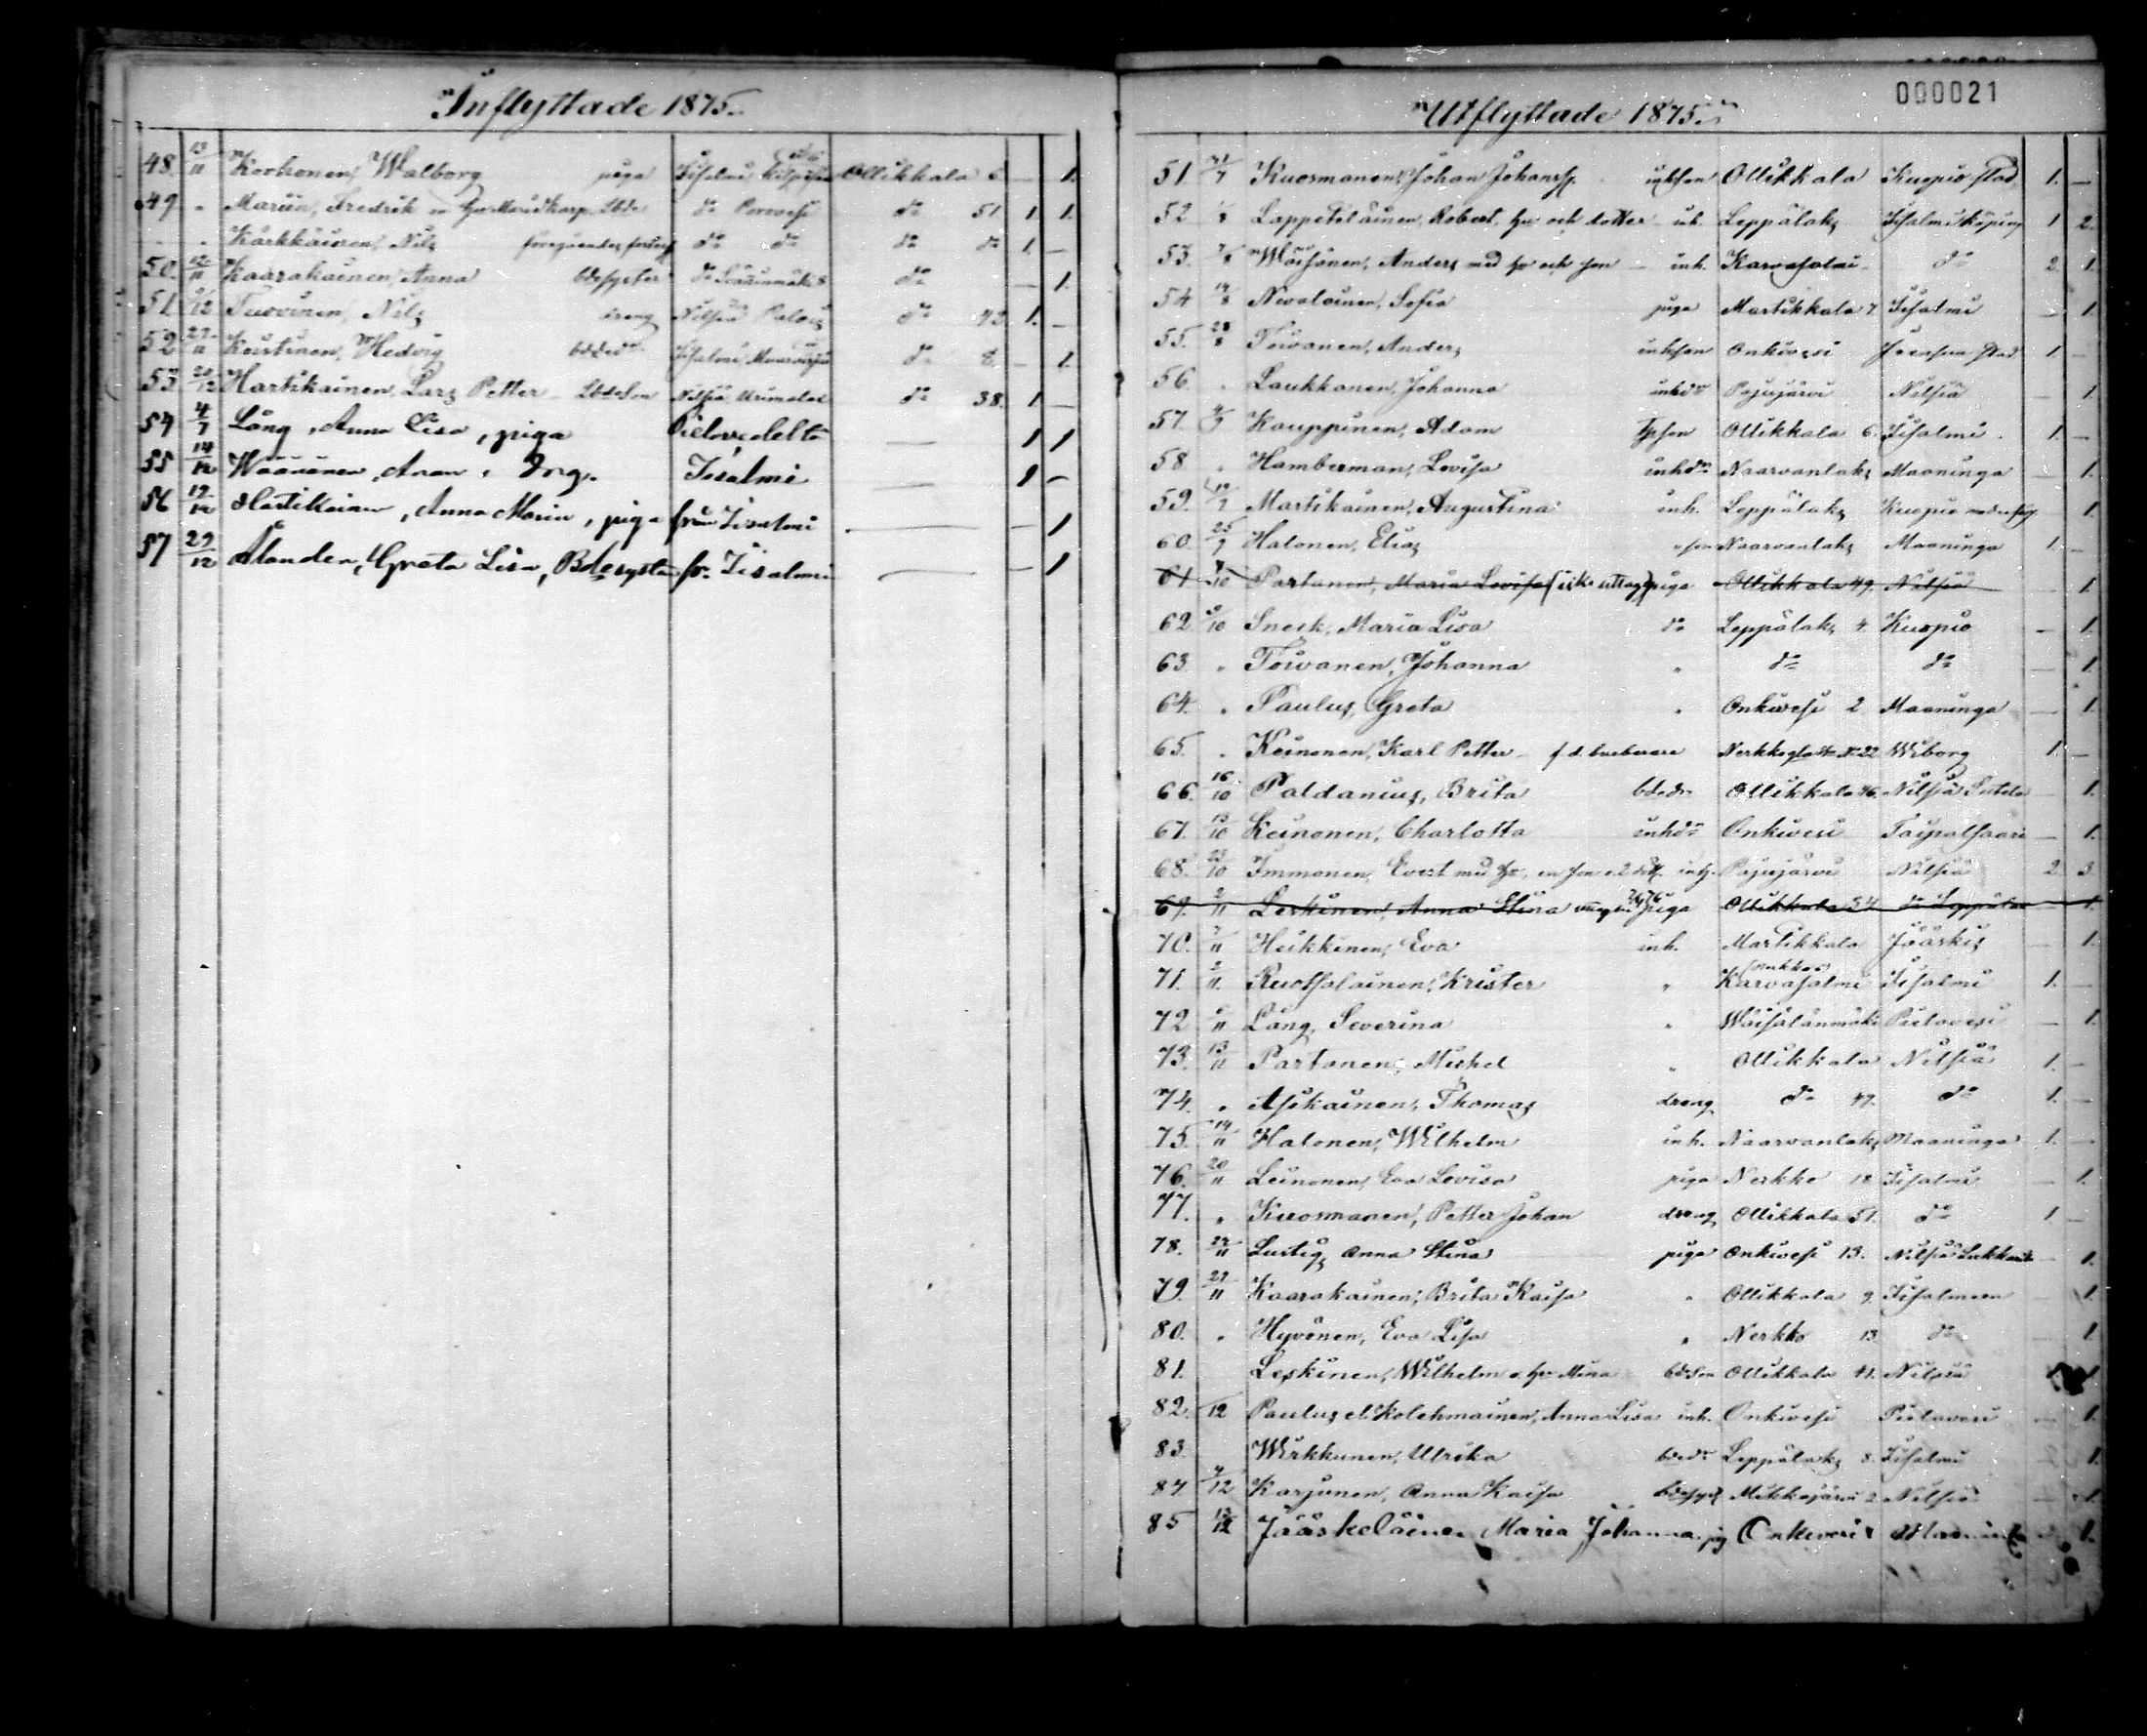 Inflyttade 1875.
48. 13/11 Korhonen, Walborg piga Iisalmi Ollikkala 6 — 1.
49. " Mariin, Fredrik m hu Maria Karp. Lbde d:o Porovesi d:o 51 1. 1.
" " Kärkkäinen, Nils föregåendes d:o d:o d:o d:o 1. —
50. 12/11 Kaarakainen, Anna bdesyster d:o d:o — 1.
51. /12 Tuovinen, Nils dreng Nilsiä Palois d:o 42 1. —
52. 27/11 Keistinen, Hedvig bdedr Iisalmi d:o 8 — 1.
53. 20/12 Hartikainen, Lars Petter Lbdeson Nilsiä d:o 38. 1 —
54 4/7 Lång, Anna Lisa, piga Pielavedeltä — 1 1
55 14/12 Väänänen, Aron, Drg. Iisalmi — 1 —
56 19/12 Hartikainen, Anna Maria, piga från Iisalmi — — 1
57 29/12 Ålander, Greta Lisa, Bdesyster fr. Iisalmi — — 1
000021
Utflyttade 1875.
51. 31/7 Kuosmanen, Johan Johanss. inhson Ollikkala Kuopio stad 1. —
52 /8 Lappeteläinen, Robert, hu och dotter inh. Leppälaks Iisalmi köping 1 2.
53. 7/8 Wäisänen, Anders med hu och son — inh. Karvasalmi d:o 2. 1.
54 14/8 Nivalainen, Sofia piga Martikkala 7. Iisalmi — 1
55. 28/8 Toivanen, Anders inhson Onkivesi Joensuu stad 1. —
56. " Laukkanen, Johanna inhdr Pajujärvi Nilsiä — 1
57. 4/9 Kauppinen, Adam Tpson Ollikkala 6. Iisalmi. 1. —
58. " Hamberman, Lovisa inhdr Naarvanlaks Maaninga — 1.
59. 19/9 Martikainen, Augustina inh. Leppälaks Kuopio — 1.
60. 25/9 Halonen, Elias " son Naarvanlaks Maaninga 1. —
61 8/10 Partanen, Maria Lovisa (icke uttagit) piga Ollikkala 49. Nilsiä — 1.
62. /10 Sneck, Maria Lisa d:o Leppälaks 4. Kuopio — 1.
63. " Toivanen, Johanna " d:o d:o — 1.
64. " Paulus, Greta " Onkivesi 2 Maaninga — 1.
65. " Keinonen, Karl Petter f.d. Nerkko N:o 22 Wiborg 1. —
66. 16/10 Paldanius, Brita bdedr Ollikkala 46. Nilsiä — 1.
67. 13/10 Keinonen, Charlotta inhdr Onkivesi Taipalsaari — 1.
68. 23/10 Immonen, Evert med hu, en son o 2 dött. inh. Pajujärvi Nilsiä 2. 3
69. 2/11 Leskinen, Anna Stina piga Ollikkala 34 d:o Leppälaks — 1.
70. 7/11 Heikkinen, Eva inh. Martikkala Jääskis — 1.
71. 2/11 Ruotsalainen, Krister " Karvasalmi Iisalmi 1. —
72 /11 Lång, Severina " Wäisälänmäki Pielavesi — 1.
73. 13/11 Partanen, Mickel " Ollikkala Nilsiä 1. —
74. " Asikainen, Thomas dreng d:o 47. d:o 1. —
75. 14/11 Halonen, Wilhelm inh. Naarvanlaks Maaninga 1. —
76. 20/11 Leinonen, Eva Lovisa piga Nerkko 18 Iisalmi — 1.
77. " Kuosmanen, Petter Johan dreng Ollikkala 51. d:o 1 —
78. 22/11 Lustig, Anna Stina piga Onkivesi 13. Nilsiä — 1.
79. 27/11 Kaarakainen, Brita Kaisa " Ollikkala 9. Iisalmeen — 1.
80. " Hyvönen, Eva Lisa " Nerkko 13 d:o — 1.
81. Leskinen, Wilhelm o hu Mina bdeson Ollikkala 41. Nilsiä 1 1
82. /12 Paulus el. Kolehmainen, Anna Lisa inh. Onkivesi Pielavesi — 1.
83. Wirkkunen, Ulrika bdedr Leppälaks 8. Iisalmi — 1.
84 4/12 Karjunen, Anna Kaisa bdesyst Mikkajärvi 2 Nilsiä — 1.
85 12/12 Jääskeläinen Maria Johanna pig Onkivesi 8 Maaninga — 1.